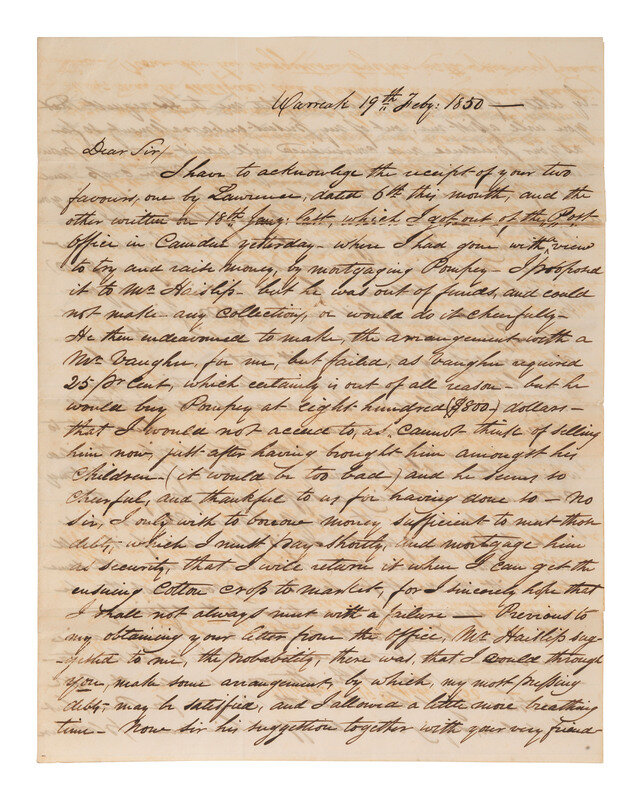 Warreah 19th Feby: 1850 —
Dear Sir/
I have to acknowlege the receipt of your two
favours, one by Lawrence, dated 6th this month, and the
other written on 18th Jany: last, which I got out of the Post
Office in Camden yesterday - where I had gone with a view
to try and raise money, by mortgaging Pompey - I proposed
it to Mr. Haislip - but he was out of funds, and could
not make any collection, or would do it cheerfully -
He then endeavoured to make, the arrangement with a
Mr. Vaughn, for me, but failed, as Vaughn required
25 pr Cent, which certainly is out of all reason - but he
would buy Pompey at eight hundred ($800-) dollars -
that I would not accend to, as cannot think of selling
him now, just after having brought him amongst his
children - (it would be too bad) and he seems so
cheerful, and thankful to us for having done so - no
sir, I only wish to borrow money sufficient to meet those
debts, which I must pay shortly, and mortgage him
as security, that I will return it when I can get the
ensuing Cotton crop to market, for I sincerely hope that
I shall not always meet with a failure — Previous to
my obtaining your letter from the office, Mr. Haislip sug-
gested to me, the probability, there was, that I could through
you, make some arrangement, by which, my most pressing
debts, may be satisfied, and I allowed a little more breathing
time - Now sir his suggestion together with your very friend